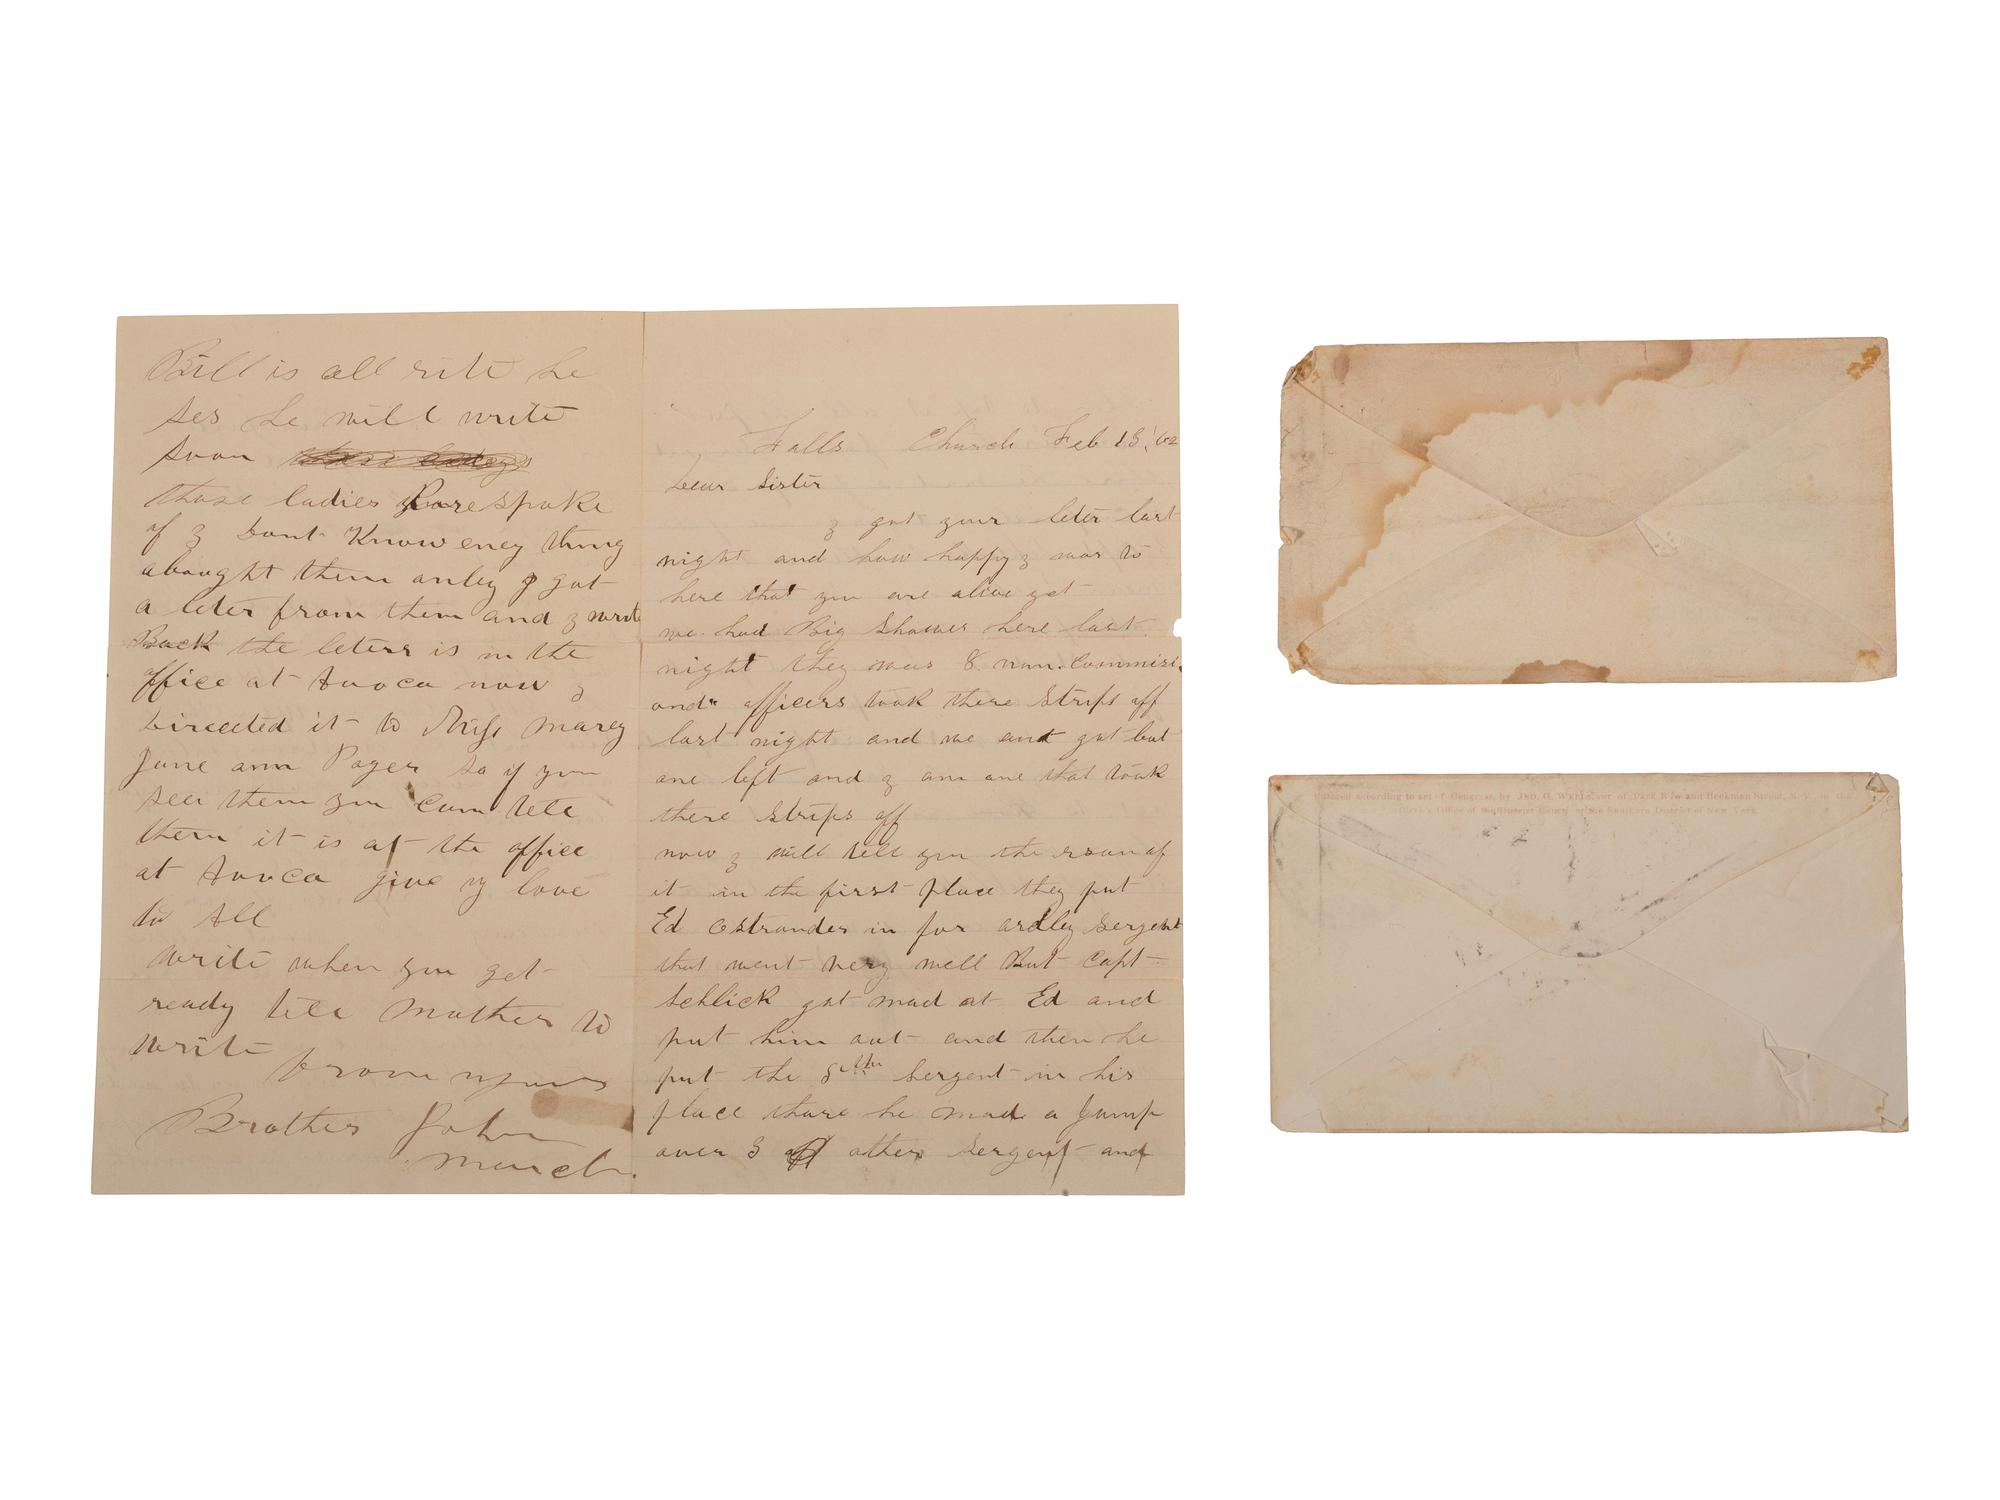 Falls Church Feb 13, '62
Dear Sister
I got your leter last
night and how happy I was to
here that you are alive yet
we had Big Shower here last
night they was 8 non. Commisi
ond" officers took there Strips off
last night and we ant got but
one left and I am one that took
there Strips off
now I will tell you the reson of
it in the first place they put
Ed Ostrander in for ardley Sergent
that went very well But Capt
Schlick got mad at Ed and
put him out and then he
put the 5th Sergent in his
place thare he mad a Jump
over 3 other Sergent and
Bill is all rite he
ses he will write
soon
those ladies spoke
of I Dont Know eney thing
abought them onley I got
a leter from them and I write
Back the leters is in the
office at Avoca now I
Directed it to Miss marey
Jane ann Pager so if you
see them you can tell
them it is at the office
at Avoca give my love
to All
write when you get
ready tell Mother to
write
from yours
Brother John
March
Entered according to act of Congress, by JNO. G. WELLS, cor of Park Row and Beekman Street, N. Y. in the
Clerk's Office of the District Court of the Southern District of New York